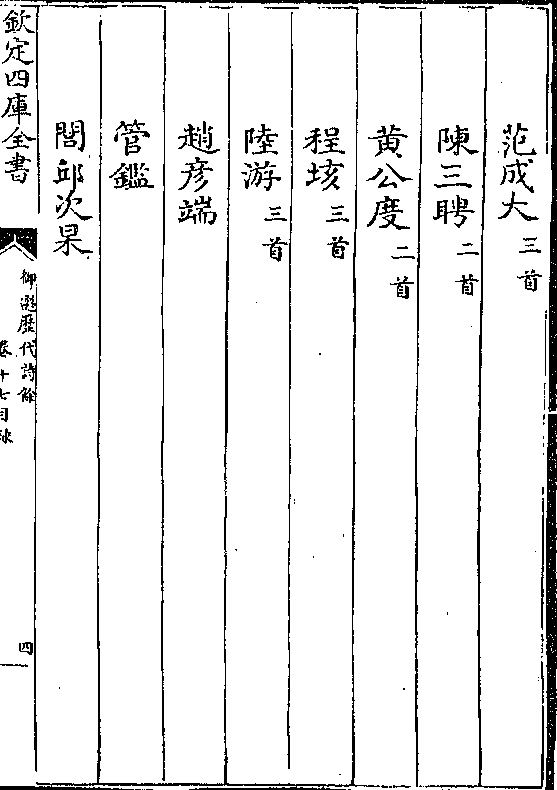 范成大三首
陳三聘二首
黄公度二首
程垓三首
陸游三首
趙彦端
管鑑
閭邱次杲
欽定四庫全書
御選歷代詩餘
卷十七目錄
四